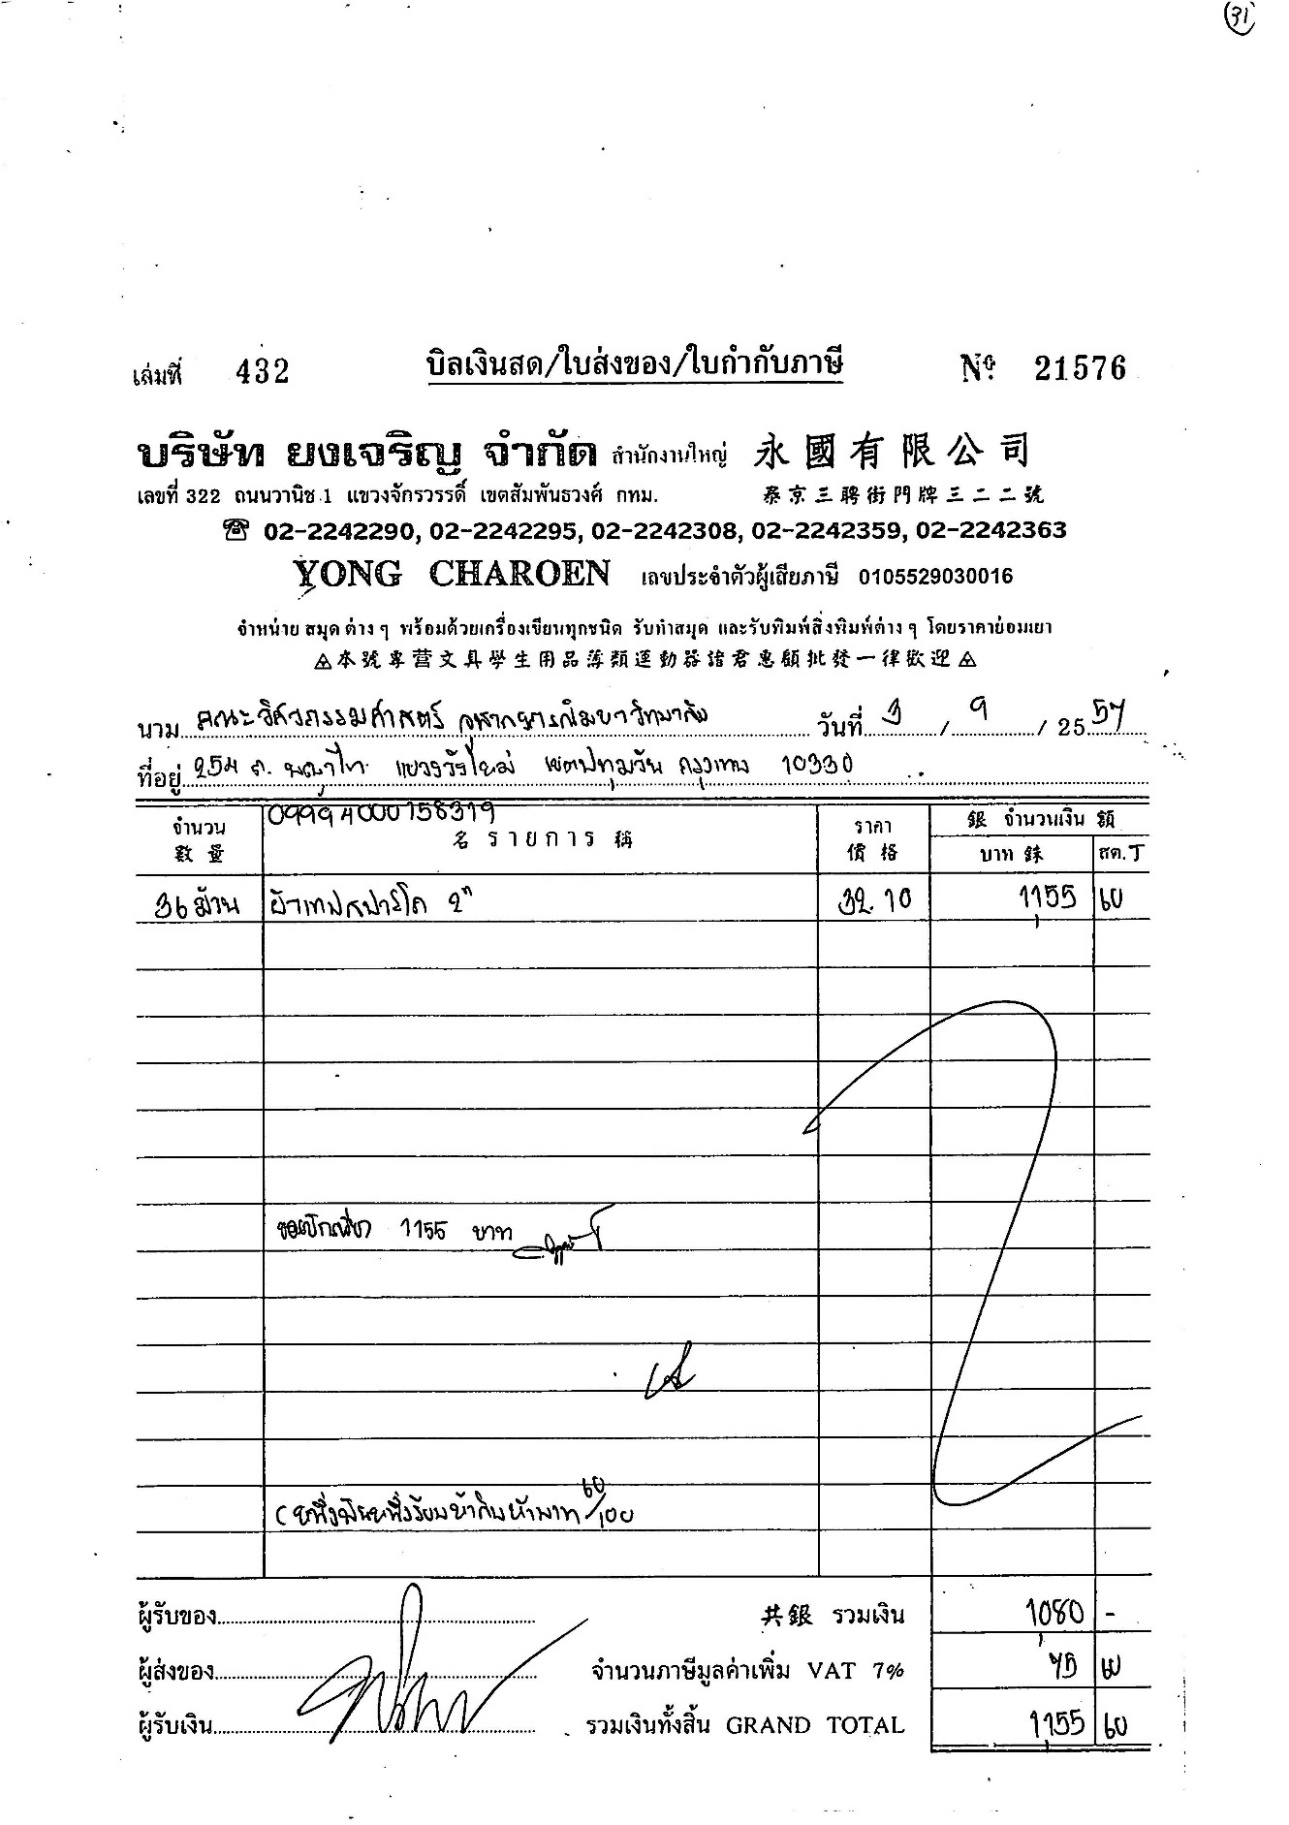 31
เล่มที่ 432 บิลเงินสด/ใบส่งของ/ใบกำกับภาษี Nº 21576
บริษัท ยงเจริญ จำกัด สำนักงานใหญ่ 永國有限公司
เลขที่ 322 ถนนวานิช 1 แขวงจักรวรรดิ์ เขตสัมพันธวงศ์ กทม. 泰京三聘街門牌三二二號
☎ 02-2242290, 02-2242295, 02-2242308, 02-2242359, 02-2242363
YONG CHAROEN เลขประจำตัวผู้เสียภาษี 0105529030016
จำหน่าย สมุด ต่าง ๆ พร้อมด้วยเครื่องเขียนทุกชนิด รับทำสมุด และรับพิมพ์สิ่งพิมพ์ต่าง ๆ โดยราคาย่อมเยา
本號專營文具學生用品簿類運動器諸君惠顧批發一律歡迎
นาม คณะวิศวกรรมศาสตร์ จุฬาลงกรณ์มหาวิทยาลัย วันที่ 3 / 9 / 2557
ที่อยู่ 254 ถ. พญาไท แขวงวังใหม่ เขตปทุมวัน กรุงเทพ 10330
09994000158319
จำนวน 數量 名 รายการ 稱 ราคา 價格 銀 จำนวนเงิน 額
บาท 銖 สต.丁
36 ม้วน ผ้าเทปสปาร์โก 2" 32.10 1,155 60
ขอเบิกเพียง 1155 บาท
(หนึ่งพันหนึ่งร้อยห้าสิบห้าบาท 60/100
ผู้รับของ 共銀 รวมเงิน 1,080 -
ผู้ส่งของ จำนวนภาษีมูลค่าเพิ่ม VAT 7% 75 60
ผู้รับเงิน รวมเงินทั้งสิ้น GRAND TOTAL 1,155 60